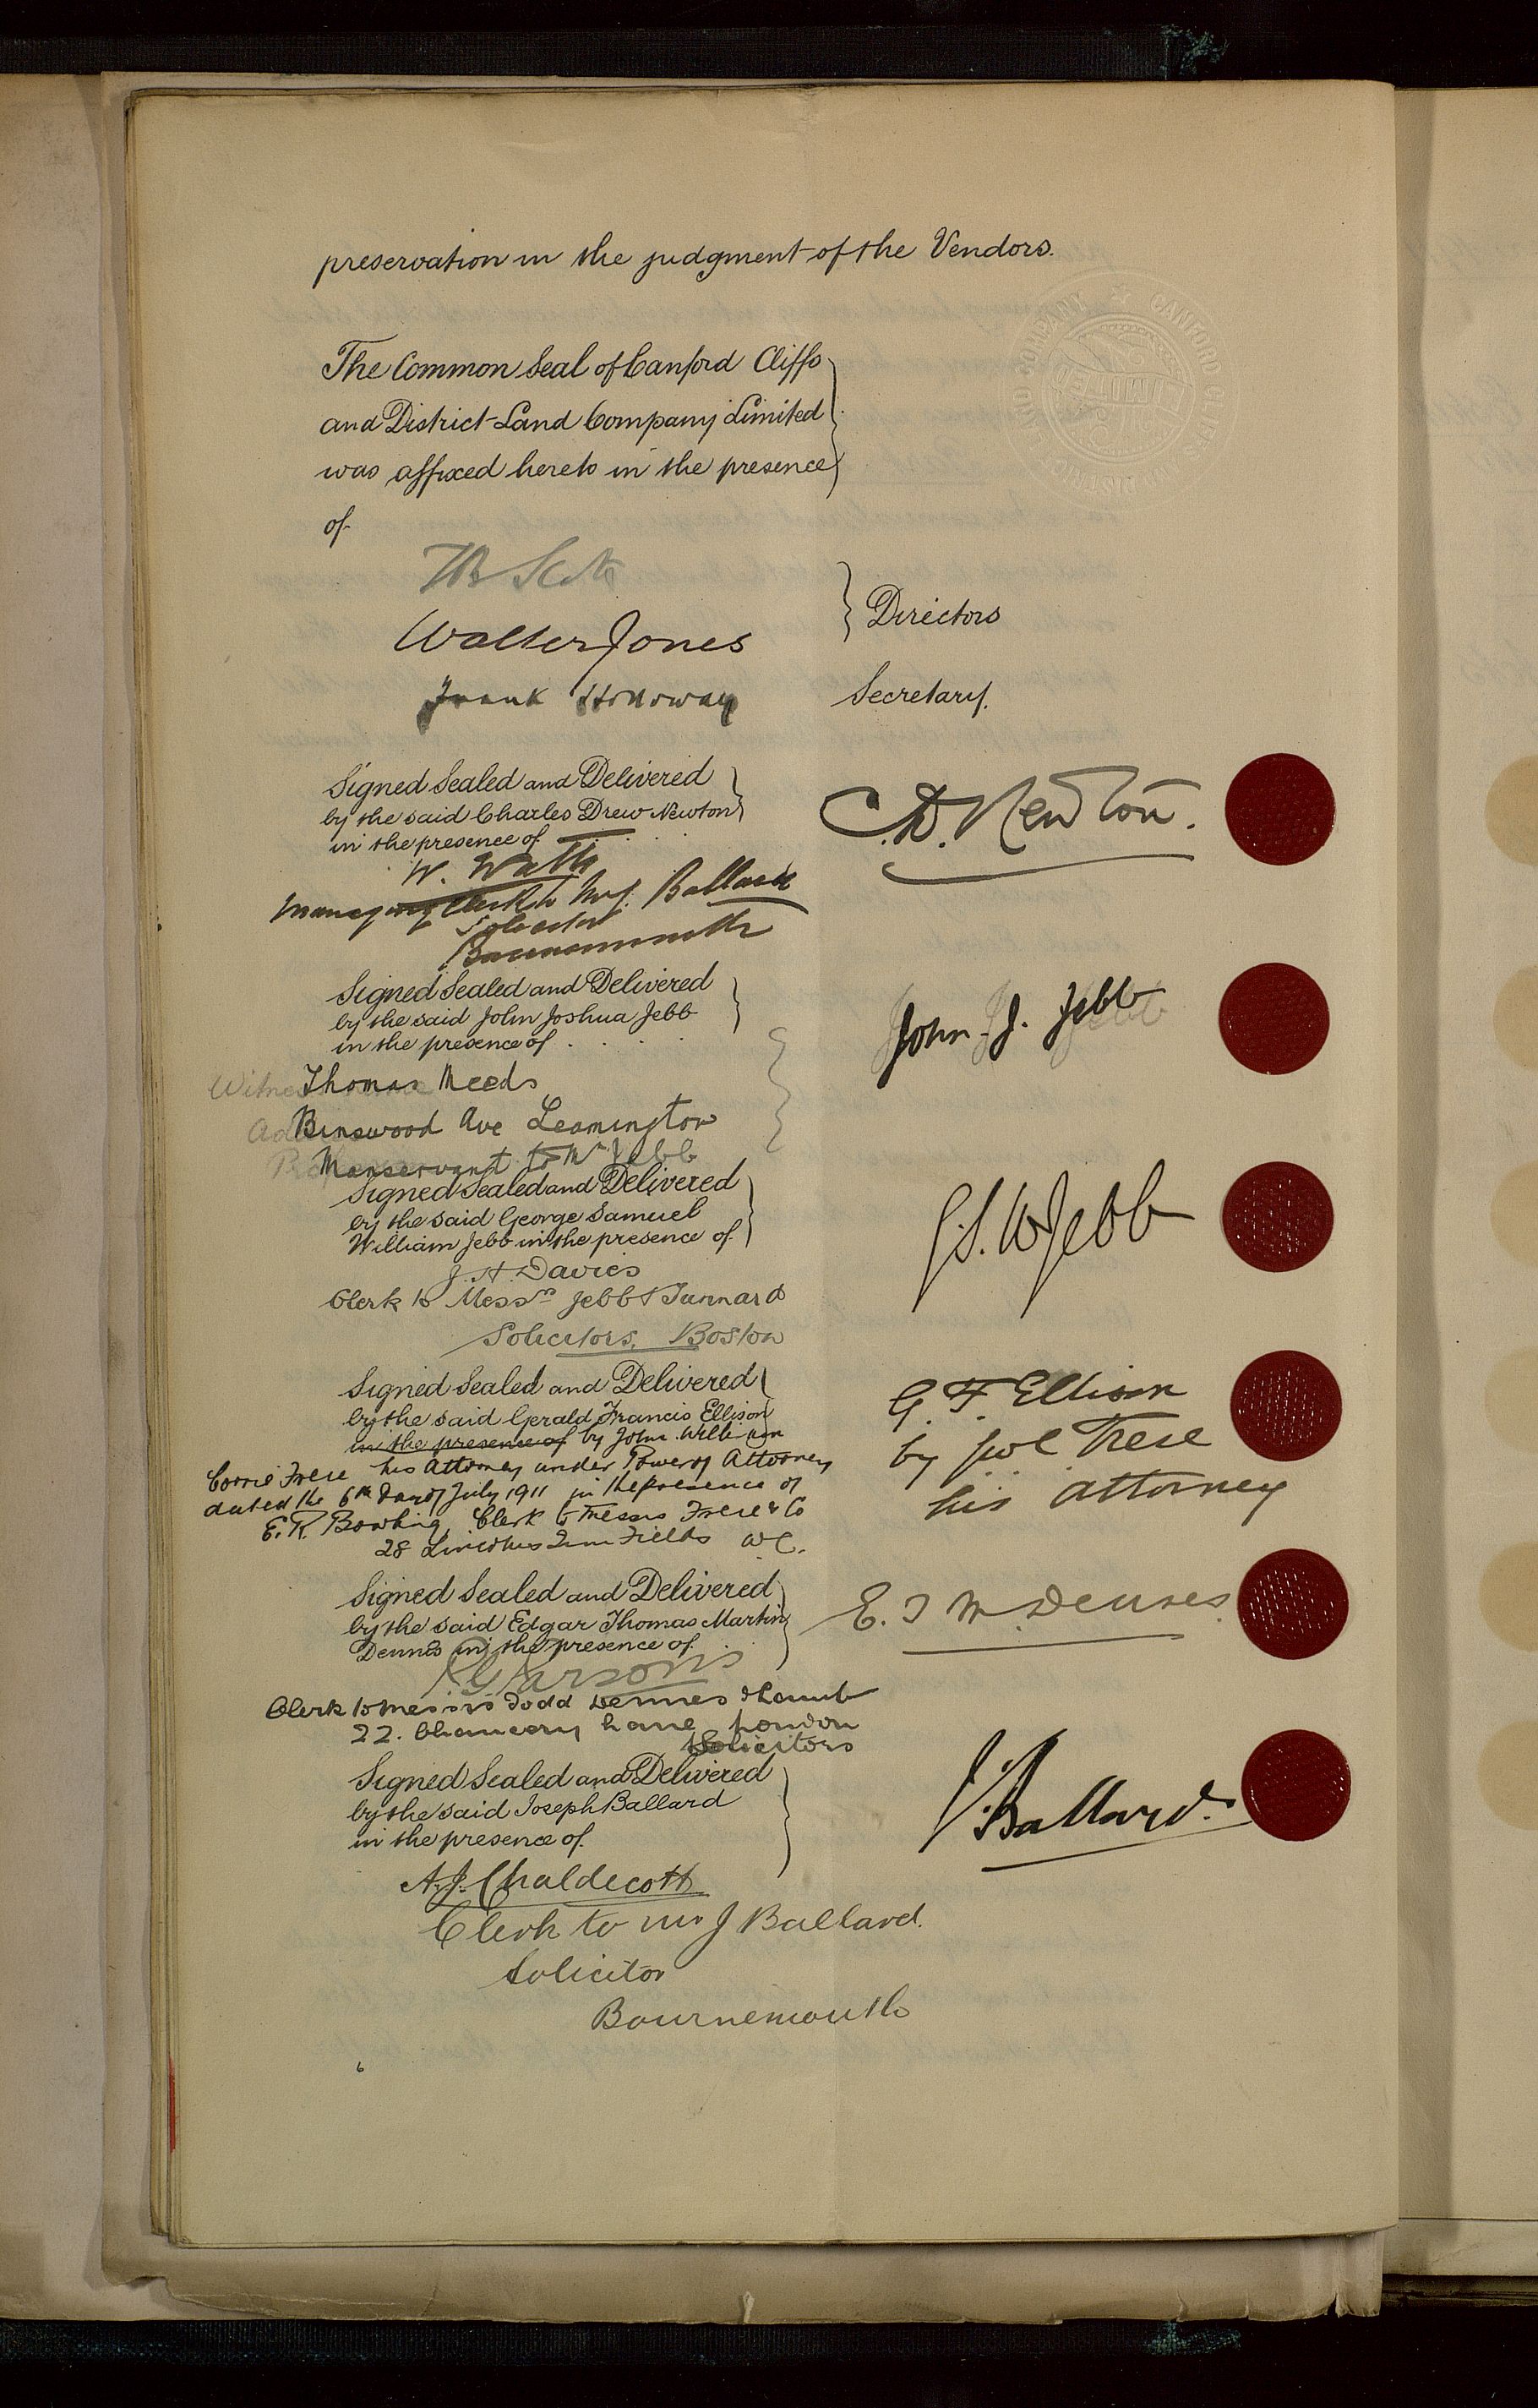 preservation in the judgment of the Vendors.
The Common Seal of Canford Cliffs
and District Land Company Limited
was affixed hereto in the presence
of
CANFORD CLIFFS
LIMITED
Walter Jones
Directors
Frank Holloway
Secretary.
Signed Sealed and Delivered
by the said Charles Drew Newton
in the presence of
C.D. Newton.
W. Watts
Managing Clerk to Mr J. Ballard
Solicitor
Bournemouth
Signed Sealed and Delivered
by the said John Joshua Jebb
in the presence of
John J. Jebb
Thomas Meeds
Binswood Ave Leamington
Manservant to Mr Jebb
Signed Sealed and Delivered
by the said George Samuel
William Jebb in the presence of
G.S.W Jebb
J.H. Davies
Clerk to Messrs Jebb & Tunnard
Solicitors, Boston
Signed Sealed and Delivered
by the said Gerald Francis Ellison
in the presence of by John William
Corrie Frere his Attorney under Power of Attorney
dated the 6th day of July 1911 in the presence of
G. F Ellison
by jwc Frere
his attorney
E. R. Bowling Clerk to Messrs Frere & Co
28 Lincolns Inn Fields WC.
Signed Sealed and Delivered
by the said Edgar Thomas Martin
Dennes in the presence of
E. T M Dennes
Parsons
Clerk to Messrs Dodd Dennes & Lamb
22. Chancery Lane London
Solicitors
Signed Sealed and Delivered
by the said Joseph Ballard
in the presence of
J. Ballard
A.J. Chaldecott
Clerk to Mr J Ballard.
Solicitor
Bournemouth